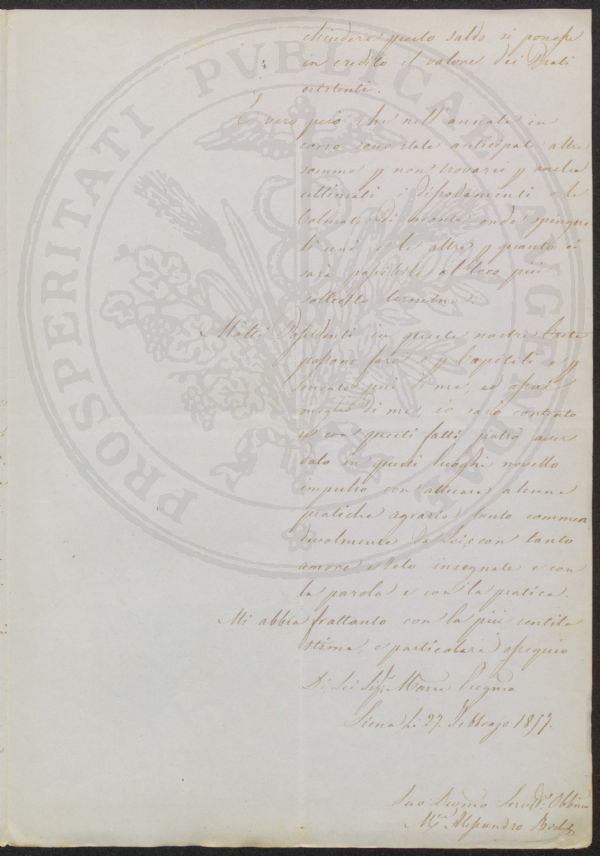 chiudere questo saldo si ponesse
in credito il valore dei Prati
esistenti.
È vero però che nell'annata in
corso sono state anticipate altre
somme p non trovarsi p anche
ultimati i dipodamenti e le
Colmate di monte, onde spingere
li uni e le altre p quanto ci
sarà possibile al loro più
sollecito termine.
Molti Possidenti in queste nostre
possono fare e p Capitali e p
mente più di me, ed assai
meglio di me, io sarò contento
se con questi fatti potrò aver
dato in questi luoghi novello
impulso con attuare alcune
pratiche agrarie tanto commen
devolmente da Lei, con tanto
amore e zelo insegnate e con
la parola e con la pratica.
Mi abbia frattanto con la più sentita
stima, e particolare ossequio
Di Lei Sig. Marse
Siena li 27. Febbrajo 1857.
Suo Devmo Servo Obbmo
Alessandro
PROSPERITATI PUBLICAE AUGENDAE